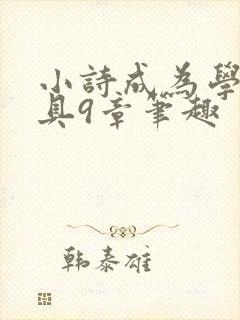 小詩成為學
具9章筆趣
韩泰雄